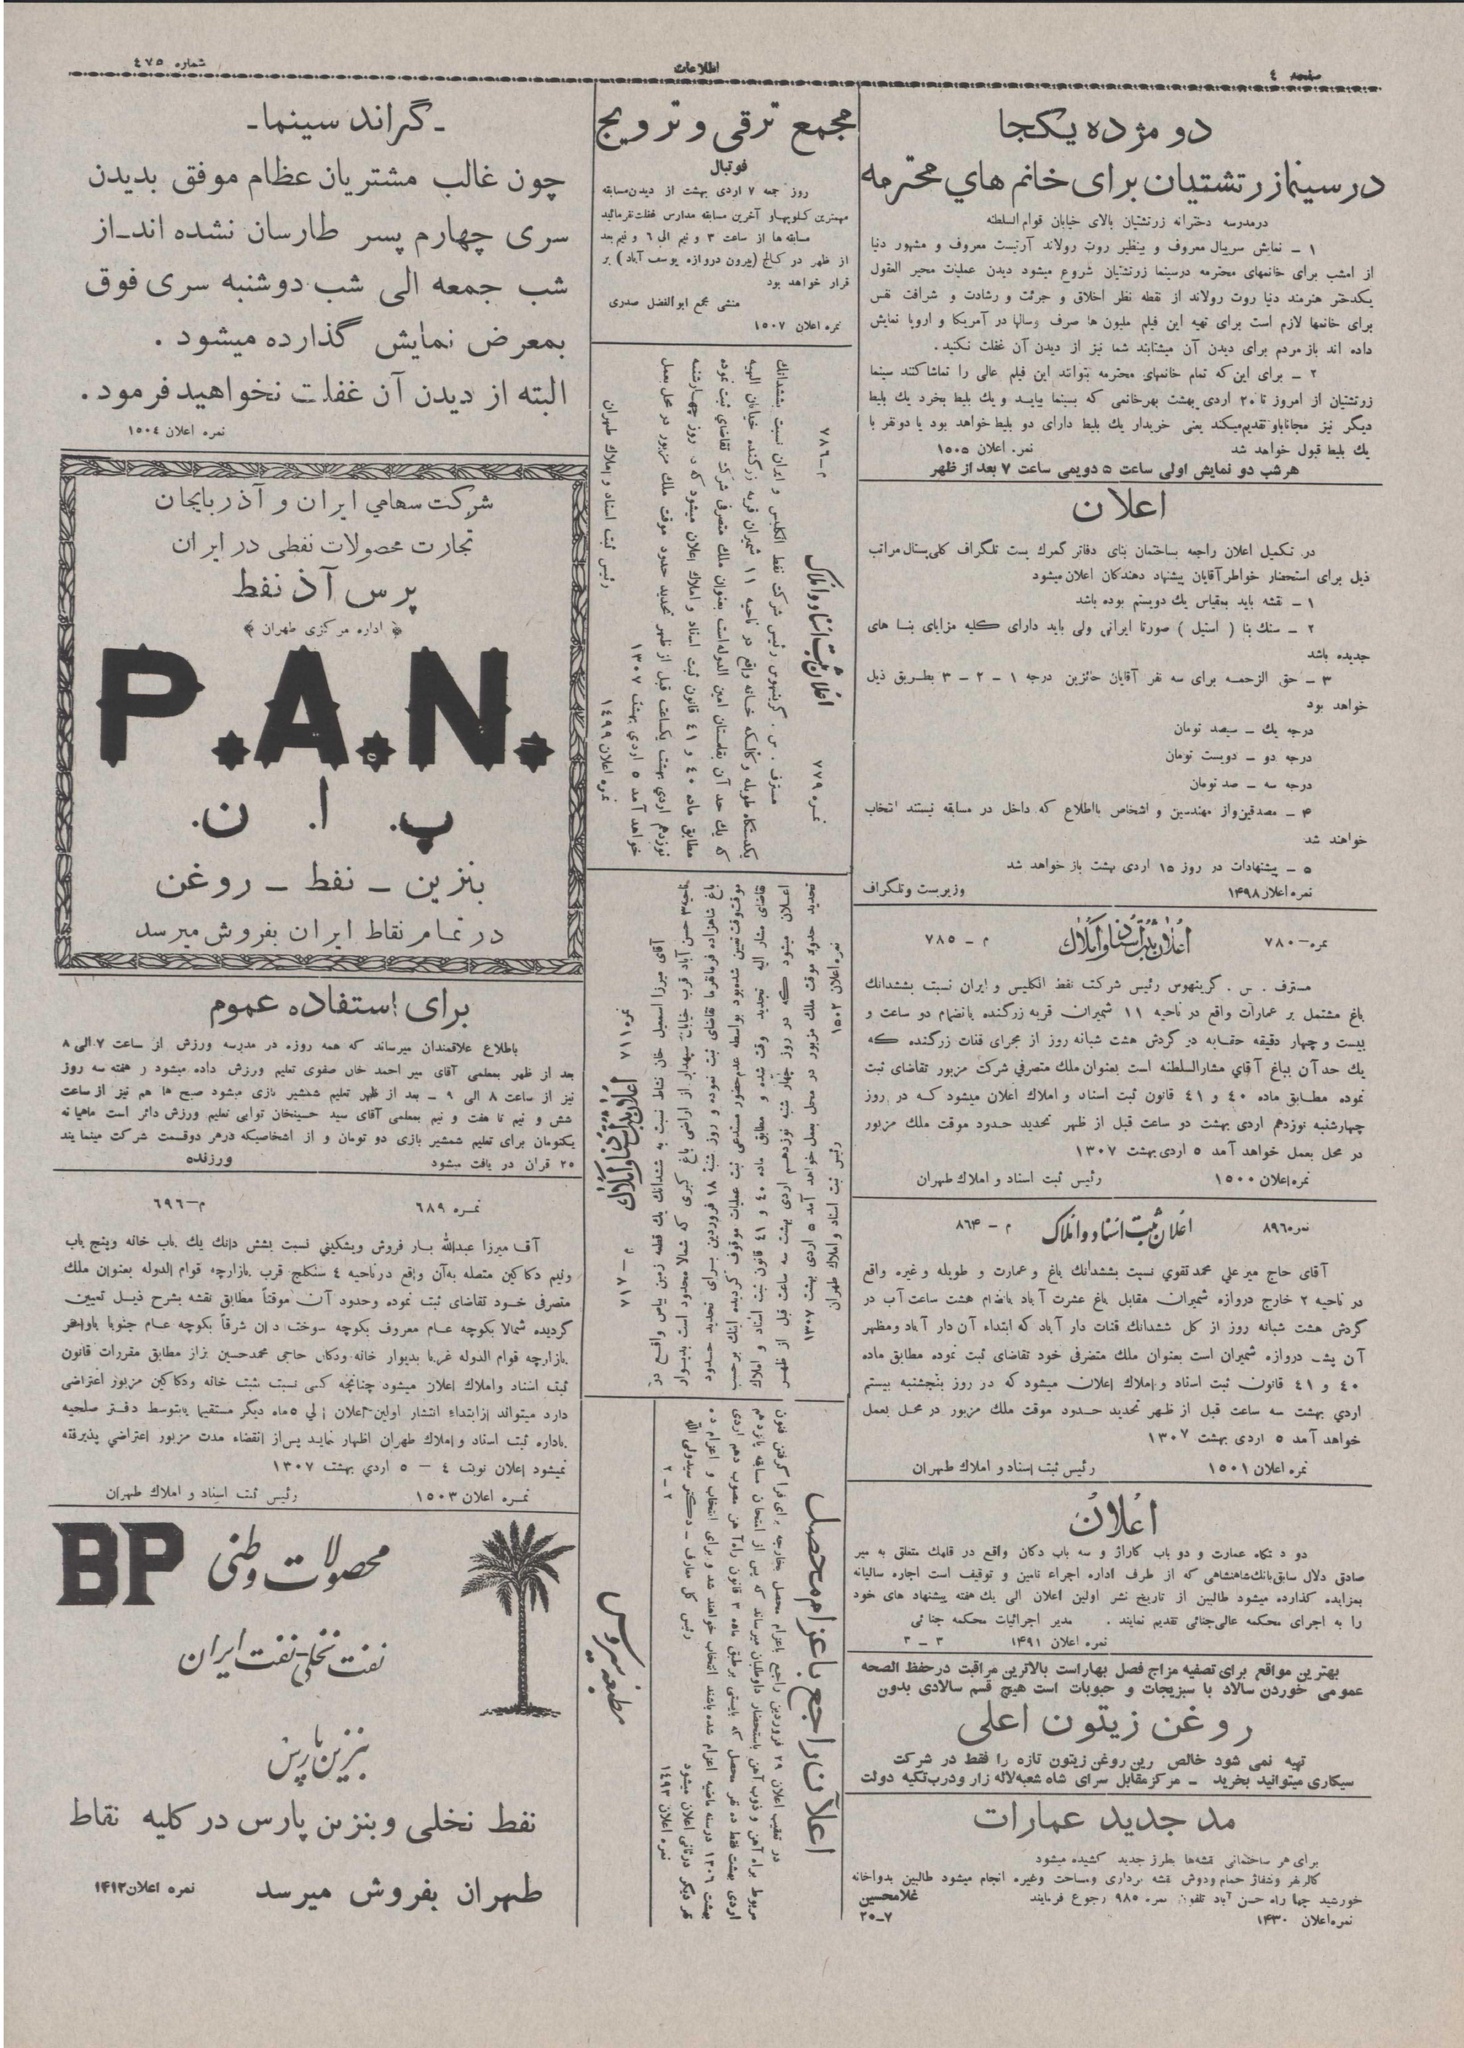 صفحه ٤
اطلاعات
شماره ٤٧٥
دو مژده یکجا
در سینما زرتشتیان برای خانم های محترمه
در مدرسه دخترانه زرتشتیان بالای خیابان قوام السلطنه
١ ـ نمایش سریال معروف و بینظیر روت رولاند آرتیست معروف و مشهور دنیا
از امشب برای خانمهای محترمه در سینما زرتشتیان شروع میشود دیدن عملیات محیر العقول
یکدختر هنرمند دنیا روت رولاند از نقطه نظر اخلاق و جرئت و رشادت و شرافت نفس
برای خانمها لازم است برای تهیه این فیلم ملیون ها صرف وسالها در آمریکا و اروپا نمایش
داده اند باز مردم برای دیدن آن میشتابند شما نیز از دیدن آن غفلت نکنید.
٢ ـ برای این که تمام خانمهای محترمه بتوانند این فیلم عالی را تماشا کنند سینما
زرتشتیان از امروز تا ٢٠ اردی بهشت بهر خانمی که بسینما بیاید و یك بلیط بخرد یك بلیط
دیگر نیز مجانا باو تقدیم میکند یعنی خریدار یك بلیط دارای دو بلیط خواهد بود یا دو نفر با
یك بلیط قبول خواهد شد نمره اعلان ١٥٠٥
هر شب دو نمایش اولی ساعت ٥ دویمی ساعت ٧ بعد از ظهر
اعلان
در تکمیل اعلان راجعه بساختمان بنای دفاتر گمرك پست تلگراف کلی پستال مراتب
ذیل برای استحضار خواطر آقایان پیشنهاد دهندکان اعلان میشود
١ ـ نقشه باید بمقیاس یك دویستم بوده باشد
٢ ـ سبك بنا ( استیل ) صورتا ایرانی ولی باید دارای کلیه مزایای بنا های
جدیده باشد
٣ ـ حق الزحمه برای سه نفر آقایان حائزین درجه ١ ـ ٢ ـ ٣ بطریق ذیل
خواهد بود
درجه یك ـ سیصد تومان
درجه دو ـ دویست تومان
درجه سه ـ صد تومان
۴ ـ مصدقین واز مهندسین و اشخاص بااطلاع که داخل در مسابقه نیستند انتخاب
خواهند شد
٥ ـ پیشنهادات در روز ١٥ اردی بهشت باز خواهد شد
نمره اعلان ١۴٩٨ وزیر پست و تلگراف
نمره ـ ٧٨٠ اعلان ثبت اسناد و املاك م ـ ٧٨٥
مسترف . س . گرینهوس رئیس شرکت نفط انکلیس و ایران نسبت بششدانك
باغ مشتمل بر عمارات واقع در ناحیه ١١ شمیران قریه زرگنده بانضمام دو ساعت و
بیست و چهار دقیقه حقابه در گردش هشت شبانه روز از مجرای قنات زرگنده که
یك حد آن بباغ آقای مشار السلطنه است بعنوان ملك متصرفی شرکت مزبور تقاضای ثبت
نموده مطابق ماده ٤٠ و ٤١ قانون ثبت اسناد و املاك اعلان میشود که در روز
چهارشنبه نوزدهم اردی بهشت دو ساعت قبل از ظهر تحدید حدود موقت ملك مزبور
در محل بعمل خواهد آمد ٥ اردی بهشت ١٣٠٧
نمره اعلان ١٥٠٠ رئیس ثبت اسناد و املاك طهران
نمره ٨٩٦ اعلان ثبت اسناد و املاك م ـ ٨٦۴
آقای حاج میر علی محمد تقوی نسبت بششدانك باغ و عمارت و طویله و غیره واقع
در ناحیه ٢ خارج دروازه شمیران مقابل باغ عشرت آباد بانضمام هشت ساعت آب در
گردش هشت شبانه روز از کل ششدانك قنات دار آباد که ابتداء آن دار آباد ومظهر
آن پشت دروازه شمیران است بعنوان ملك متصرفی خود تقاضای ثبت نموده مطابق ماده
٤٠ و ٤١ قانون ثبت اسناد و املاك اعلان میشود که در روز پنجشنبه بیستم
اردی بهشت سه ساعت قبل از ظهر تحدید حدود موقت ملك مزبور در محل بعمل
خواهد آمد ٥ اردی بهشت ١٣٠٧
نمره اعلان ١٥٠١ رئیس ثبت اسناد و املاك طهران
اعلان
دو دستگاه عمارت و دو باب گاراژ و سه باب دکان واقع در قلهك متعلق به میر
صادق دلال سابق بانك شاهنشاهی که از طرف اداره اجراء تامین و توقیف است اجاره سالیانه
بمزایده گذارده میشود طالبین از تاریخ نشر اولین اعلان الی یك هفته پیشنهاد های خود
را به اجرای محکمه عالی جنائی تقدیم نمایند . مدیر اجرائیات محکمه جنائی
نمره اعلان ١۴٩١ ٣ ـ ٣
بهترین مواقع برای تصفیه مزاج فصل بهار است بالاترین مراقبت در حفظ الصحه
عمومی خوردن سالاد با سبزیجات و حبوبات است هیچ قسم سالادی بدون
روغن زیتون اعلی
تهیه نمی شود خالص رین روغن زیتون تازه را فقط در شرکت
سیکاری میتوانید بخرید ـ مرکز مقابل سرای شاه شعبه لاله زار ودرب تکیه دولت
مد جدید عمارات
برای هر ساختمانی نقشه ها بطرز جدید کشیده میشود
کالریفر وشفاژ حمام ودوش نقشه برداری ومساحت وغیره انجام میشود طالبین بدواخانه
خورشید چهار راه حسن آباد تلفون نمره ٩٨٥ رجوع فرمایند غلامحسین
نمره اعلان ١۴٣٠ ٧ـ٢٠
مجمع ترقی و ترویج
فوتبال
روز جمعه ٧ اردی بهشت از دیدن مسابقه
مهمترین کلوپها و آخرین مسابقه مدارس غفلت نفرمائید
مسابقه ها از ساعت ٣ و نیم الی ٦ و نیم بعد
از ظهر در کالج (بیرون دروازه یوسف آباد) بر
قرار خواهد بود
منشی مجمع ابوالفضل صدری
نمره اعلان ١٥٠٧
نمره ٧٧٩ اعلان ثبت اسناد و املاك م ـ ٧٨٦
مسترف . س . گرینهوس رئیس شرکت نفط انکلیس و ایران نسبت بششدانك
یکدستگاه طویله و کالسکه خانه واقع در ناحیه ١١ شمیران قریه زرگنده خیابان الهیه
که یك حد آن بقلمستان امین الدوله است بعنوان ملك متصرفی شرکت تقاضای ثبت نموده
مطابق ماده ٤٠ و ٤١ قانون ثبت اسناد و املاك اعلان میشود که در روز چهارشنبه
نوزدهم اردی بهشت یکساعت قبل از ظهر تحدید حدود موقت ملك مزبور در محل بعمل
خواهد آمد ٥ اردی بهشت ١٣٠٧
نمره اعلان ١٤٩٩ رئیس ثبت اسناد و املاك طهران
نمره ٧١١ اعلان ثبت اسناد و املاك م ـ ٧١٧
آقای میرزا اسمعیل خان نشاط نسبت به ششدانك یك قطعه زمین بیاض واقع در
ناحیه ٣ حسن آباد قرب خیابان سپهدار از اراضی باغ کبری که شمالا محدود است بدیوار
باغ شاهزاده فرمانفرما تقاضای ثبت نموده و روز شنبه ١٨ فروردین برای تحدید حدود
موقت وقت تعیین شده بود بواسطه عدم حضور مستدعی ثبت عملیات موقوف گردیده اینك بر حسب
تقاضای مشار الیه تجدید وقت شده و مطابق ماده ٤٠ و ٤١ قانون ثبت اسناد و املاك
اعلان میشود که در روز چهار شنبه نوزدهم اردی بهشت سه ساعت قبل از ظهر
تحدید حدود موقت ملك مزبور در محل بعمل خواهد آمد ٥ اردی بهشت ١٣٠٧
نمره اعلان ١٥٠٢ رئیس ثبت اسناد و املاك طهران
اعلان راجع باعزام محصل
در تعقیب اعلان ٢٩ فروردین راجع باعزام محصل بخارجه برای فرا گرفتن فنون
مربوط براه آهن و ذوب آهن باستحضار داوطلبان میرساند که پس از امتحان مسابقه یازدهم
اردی بهشت فقط ده نفر محصل که بایستی بر طبق ماده ٣ قانون راه آهن مصوب دهم اردی
بهشت ١٣٠٦ در سنه ماضیه اعزام شده باشند انتخاب خواهند شد و برای انتخاب و اعزام ده
نفر دیگر در ثانی اعلان میشود رئیس کل معارف ـ دکتر سید ولی الله
نمره اعلان ١۴٩٣ ٢ ـ ٢
مطبعه سیروس
ـ گراند سینما ـ
چون غالب مشتریان عظام موفق بدیدن
سری چهارم پسر طارسان نشده اند ـ از
شب جمعه الی شب دوشنبه سری فوق
بمعرض نمایش گذارده میشود .
البته از دیدن آن غفلت نخواهید فرمود .
نمره اعلان ١٥٠٤
شرکت سهامی ایران و آذربایجان
تجارت محصولات نفطی در ایران
پرس آذ نفط
﴿ اداره مرکزی طهران ﴾
P.A.N.
پ. ا. ن.
بنزین ـ نفط ـ روغن
در تمام نقاط ایران بفروش میرسد
برای استفاده عموم
باطلاع علاقمندان میرساند که همه روزه در مدرسه ورزش از ساعت ٧ الی ٨
بعد از ظهر بمعلمی آقای میر احمد خان صفوی تعلیم ورزش داده میشود و هفته سه روز
نیز از ساعت ٨ الی ٩ ـ بعد از ظهر تعلیم شمشیر بازی میشود صبح ها هم نیز از ساعت
شش و نیم تا هفت و نیم بمعلمی آقای سید حسینخان توابی تعلیم ورزش دائر است ماهیانه
یکتومان برای تعلیم شمشیر بازی دو تومان و از اشخاصیکه در هر دو قسمت شرکت مینمایند
٢٥ قران دریافت میشود ورزنده
نمره ٦٨٩ م ـ ٦٩٦
آقا میرزا عبدالله بار فروش ویشکینی نسبت بشش دانك یك باب خانه وپنج باب
ونیم دکاکین متصله به آن واقع در ناحیه ٤ سنکلج قرب بازارچه قوام الدوله بعنوان ملك
متصرفی خود تقاضای ثبت نموده وحدود آن موقتاً مطابق نقشه بشرح ذیل تعیین
گردیده شمالا بکوچه عام معروف بکوچه سوخت دان شرقاً بکوچه عام جنوبا باواخر
بازارچه قوام الدوله غربا بدیوار خانه ودکان حاجی محمد حسین بزاز مطابق مقررات قانون
ثبت اسناد واملاك اعلان میشود چنانچه کسی نسبت بثبت خانه ودکاکین مزبور اعتراضی
دارد میتواند از ابتداء انتشار اولین اعلان الی ٥ ماه دیگر مستقیما یا بتوسط دفتر صلحیه
باداره ثبت اسناد و املاك طهران اظهار نماید پس از انقضاء مدت مزبور اعتراضی پذیرفته
نمیشود اعلان نوبت ٤ ـ ٥ اردی بهشت ١٣٠٧
نمره اعلان ١٥٠٣ رئیس ثبت اسناد و املاك طهران
محصولات وطنی BP
نفت نخلی ـ نفت ایران
بنزین پارس
نفط نخلی و بنزین پارس در کلیه نقاط
طهران بفروش میرسد نمره اعلان ١۴١٢